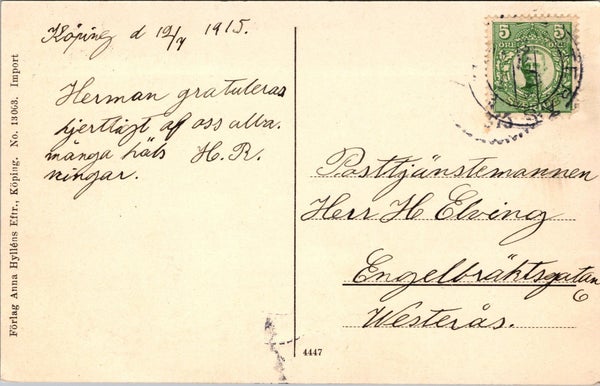 Köping d 19/7 1915.
Herman gratuleras
hjertligt af oss alla.
många häls H. R.
ningar.
5 5
ÖRE ÖRE
Posttjänstemannen
Herr H Elving
Engelbräktsgatan
6
Westerås.
4447
Förlag Anna Hylléns Eftr., Köping. No. 13063. Import